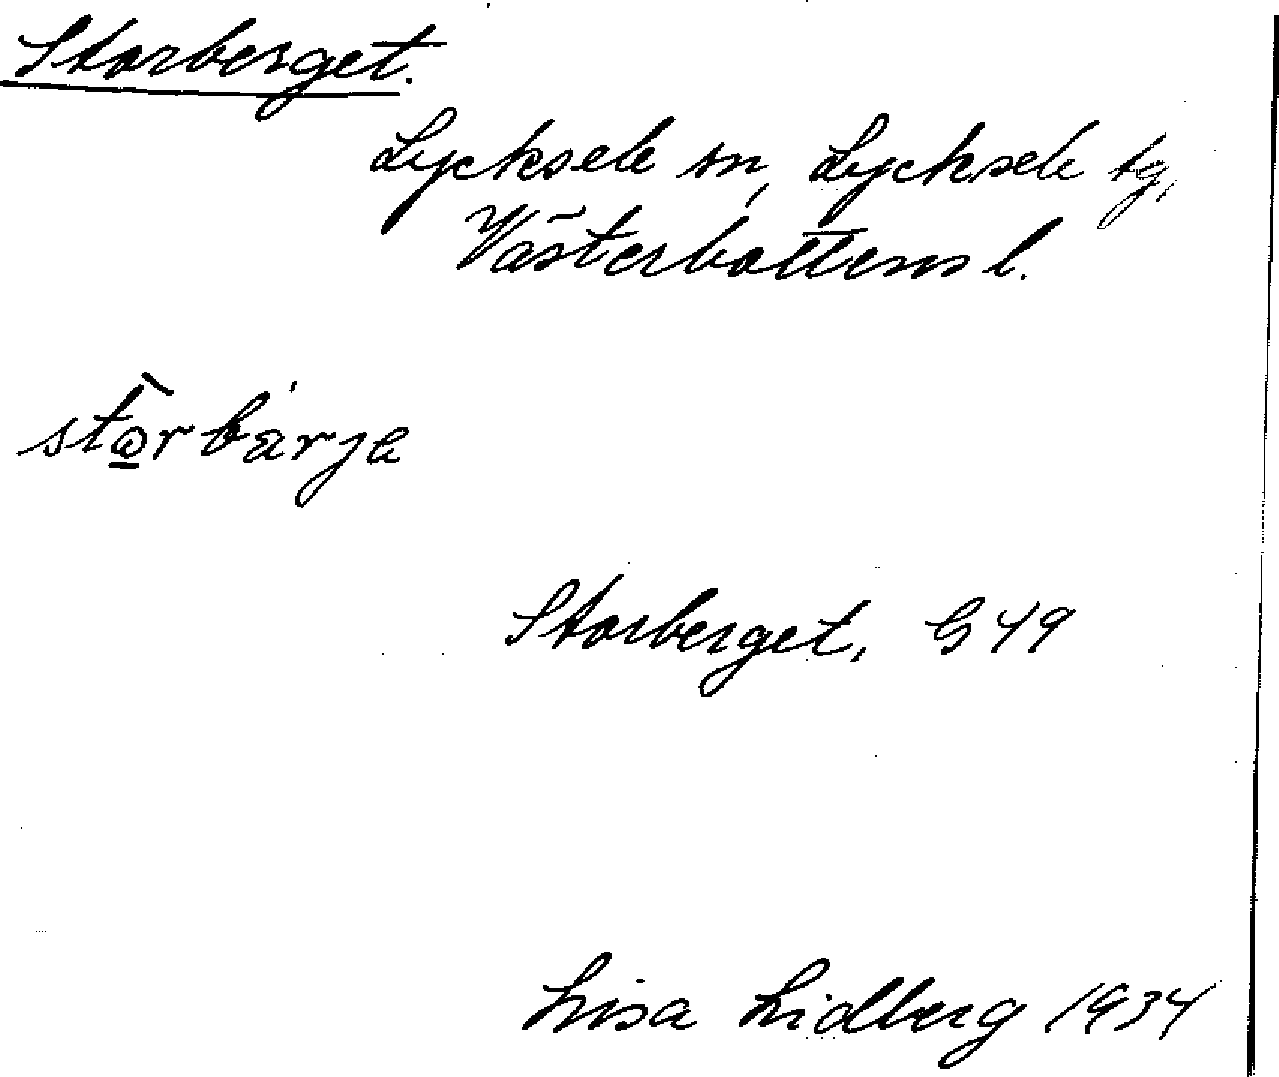 Storberget.
Lycksele sn, Lycksele tg,
Västerbottens l.
stòrbárja
Storberget, G 49
Lisa Lidberg 1934